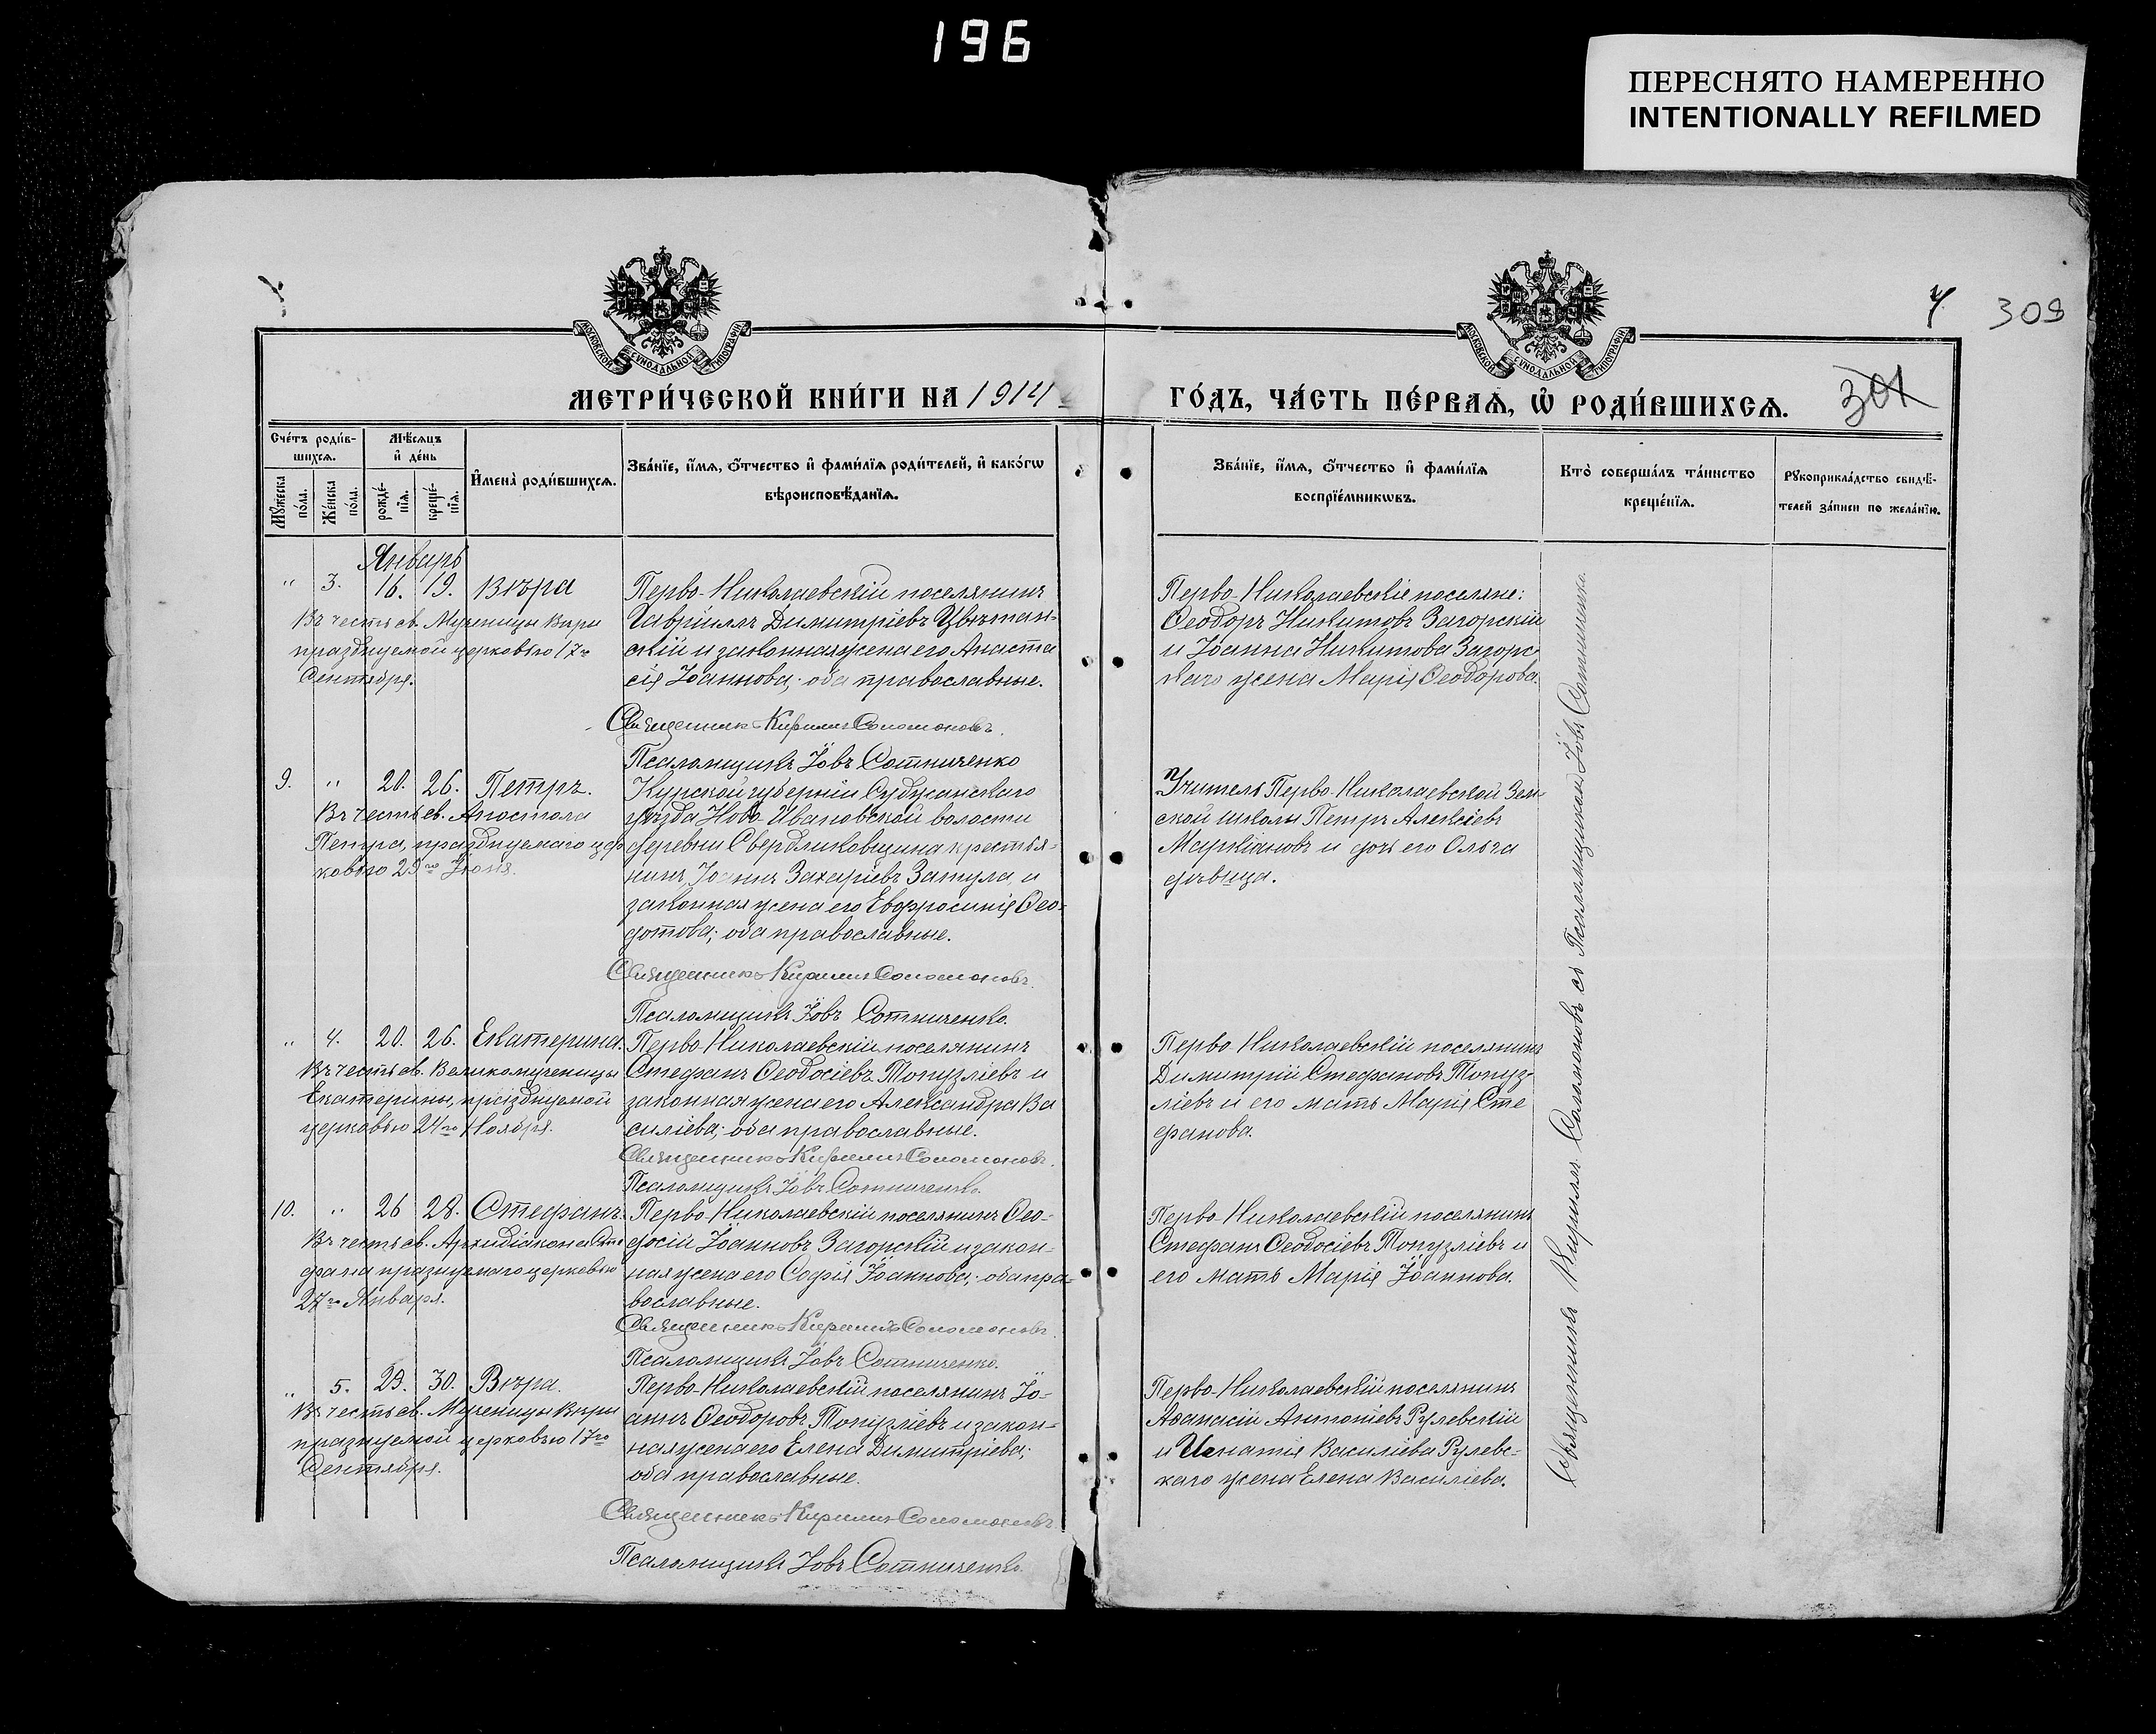 196
ПЕРЕСНЯТО НАМЕРЕННО
INTENTIONALLY REFILMED
4.
309
301
МОСКОВСКОЙ СѴНОДАЛЬНОЙ ТИПОГРАФІИ
МОСКОВСКОЙ СѴНОДАЛЬНОЙ ТИПОГРАФІИ
МЕТРИ́ЧЕСКОЙ КНИ́ГИ НА 1914
ГО́ДЪ, ЧА́СТЬ ПЕ́РВАѦ, Ѡ҆ РОДИ́ВШИХСѦ.
Сче́тъ роди́в-
шихсѧ.
Мꙋ́жеска по́ла.
Же́нска по́ла.
Мѣ́сѧцъ
и҆ де́нь
рожде́-нїѧ.
креще́-нїѧ.
И҆мена̀ роди́вшихсѧ.
Зва́нїе, и҆́мѧ, ѻ҆́тчество и҆ фами́лїѧ роди́телей, и҆ како́гѡ
вѣроисповѣ́данїѧ.
Зва́нїе, и҆́мѧ, ѻ҆́тчество и҆ фами́лїѧ
воспрїе́мникѡвъ.
Кто̀ соверша́лъ та́инство
креще́нїѧ.
Рꙋкоприкла́дство свидѣ́-
телей за́писи по жела́нїю.
Январь
" 3. 16. 19. Вѣра
Въ честь св. Мученицы Вѣры
празднуемой церковью 17го
Сентября.
Перво-Николаевскій поселянинъ
Гавріилъ Димитріевъ Цвѣтан-
скій и законная жена его Анаста
сія Іоаннова; оба православные.
Священникъ Кириллъ Соломоновъ.
Псаломщикъ Іовъ Сотниченко
Перво-Николаевскіе поселяне:
Ѳеодоръ Никитовъ Загорскій
и Іоанна Никитова Загорс-
каго жена Марія Ѳеодорова.
9. " 20. 26. Петръ.
Въ честь св. Апостола
Петра, празднуемаго цер
ковью 29го Іюня.
Курской губерніи Суджанскаго
уѣзда Ново-Ивановской волости
деревни Свердликовщина крестья-
нинъ, Іоаннъ Захаріевъ Запула, и
законная жена его Евфросинія Ѳео-
дотова; оба православные.
Священникъ Кириллъ Соломоновъ.
Псаломщикъ Іовъ Сотниченко.
Учитель Перво-Николаевской Зем-
ской школы Петръ Алексіевъ
Маркіановъ и дочь его Ольга
дѣвица.
" 4. 20. 26. Екатерина.
Въ честь св. Великомученицы
Екатерины, празднуемой
церковью 24го Ноября.
Перво-Николаевскій поселянинъ
Стефанъ Ѳеодосіевъ Топузліевъ и
законная жена его Александра Ва
силіева; оба православные.
Священникъ Кириллъ Соломоновъ.
Псаломщикъ Іовъ Сотниченко.
Перво-Николаевскій поселянинъ
Димитрій Стефановъ Топуз-
ліевъ и его мать Марія Сте
фанова.
10. " 26 28. Стефанъ.
Въ честь св. Архидіакона Сте
фана празнуемаго церковью
27го Января.
Перво-Николаевскій поселянинъ Ѳео-
досій Іоанновъ Загорскій и закон-
ная жена его Софія Іоаннова; оба пра-
вославные.
Священникъ Кириллъ Соломоновъ.
Псаломщикъ Іовъ Сотниченко.
Перво-Николаевскій поселянинъ
Стефанъ Ѳеодосіевъ Топузліевъ и
его мать Марія Іоаннова.
" 5. 29. 30. Вѣра.
Въ честь св. Мученицы Вѣры
празнуемой церковью 17го
Сентября.
Перво-Николаевскій поселянинъ Іо-
аннъ Ѳеодоровъ Топузліевъ и закон-
ная жена его Елена Димитріева;
оба православные.
Священникъ Кириллъ Соломоновъ.
Псаломщикъ Іовъ Сотниченко.
Перво-Николаевскій поселянинъ
Аѳанасій Антоніевъ Рулевскій
и Игнатія Василіева Рулевс-
каго жена Елена Василіева.
Священникъ Кириллъ Соломоновъ съ Псаломщикомъ Іовъ Сотниченко.